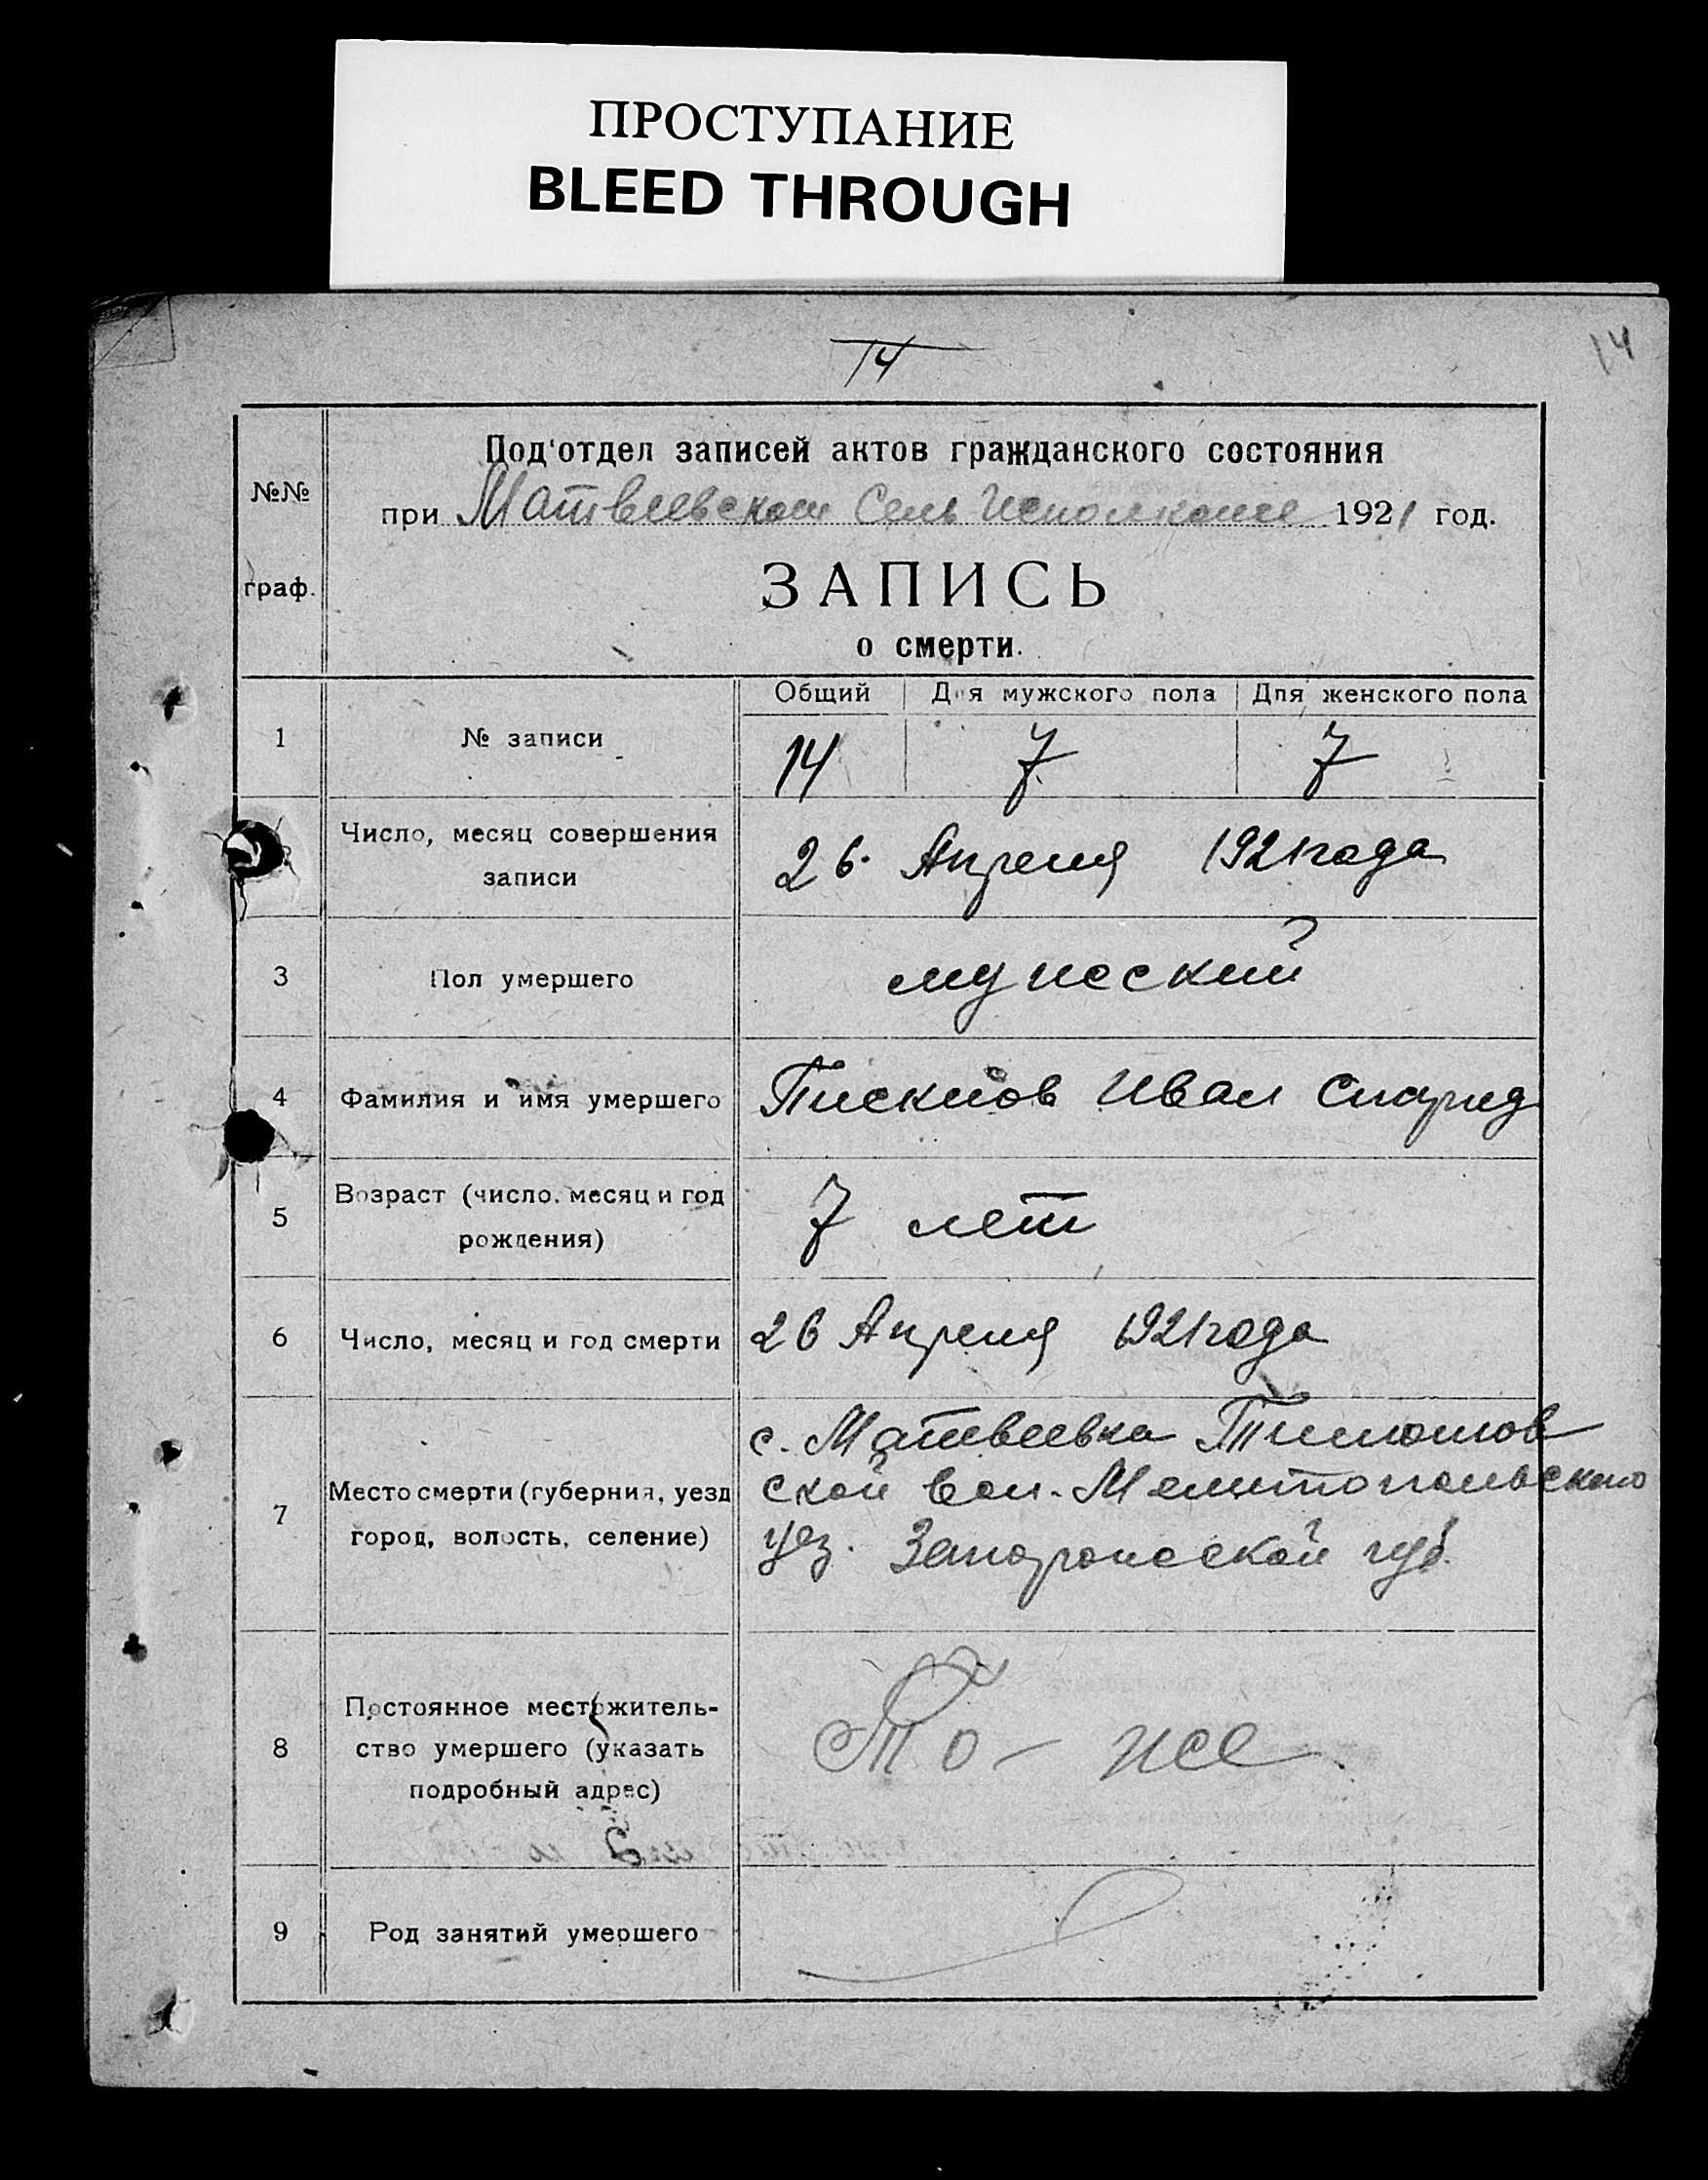 ПРОСТУПАНИЕ
BLEED THROUGH
14
14
№№
граф.
Под'отдел записей актов гражданского состояния
при Матвеевском Сель Исполкоме 1921 год.
ЗАПИСЬ
о смерти.
Общий Для мужского пола Для женского пола
1 № записи 14 7 7
Число, месяц совершения
записи
26 Апреля 1921 года
3 Пол умершего мужеский
4 Фамилия и имя умершего Иван
5 Возраст (число, месяц и год
рождения)
7 лет
6 Число, месяц и год смерти 26 Апреля 1921 года
7 Место смерти (губерния, уезд
город, волость, селение)
с. Матвеевка Тимошов
ской вол. Мелитопольского
уез. Запорожской губ.
8 Постоянное местожитель-
ство умершего (указать
подробный адрес)
То-же
9 Род занятий умершего